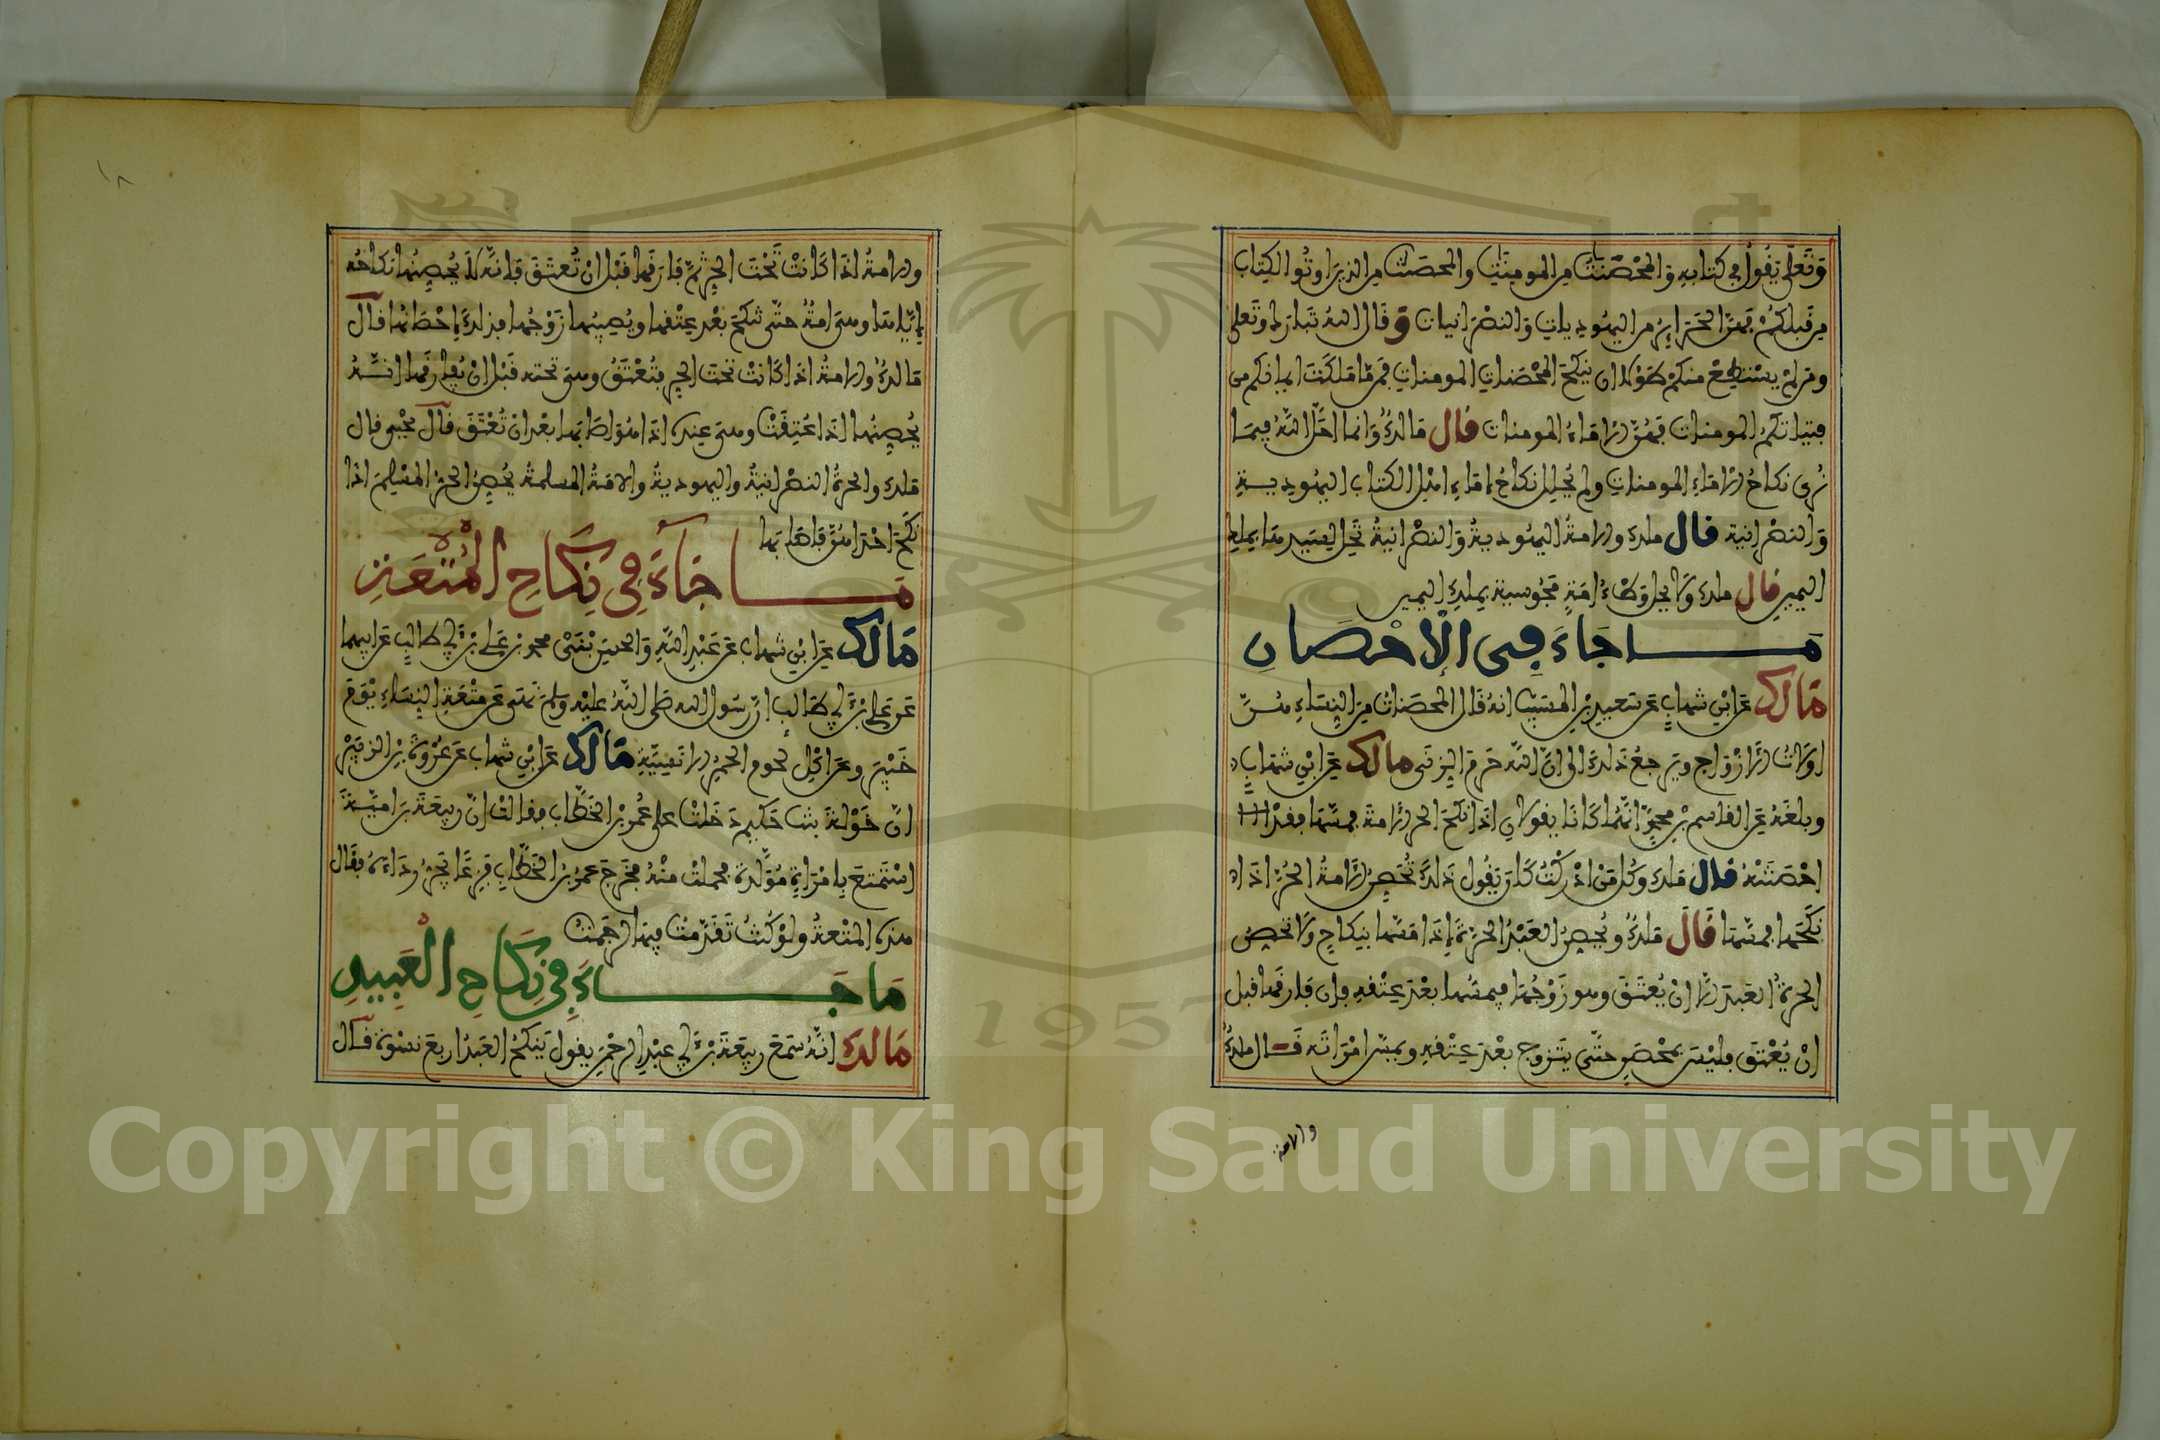 وَتَعَلَى يَقُولُ فِي كتابِهِ وَالمُحْصَنَتُ مِن المومِنَتِ والمحصَنَتُ مِن الذين اوتُوا الكِتَاب
مِن قَبلكُمْ فهُنَّ الحَرَايِرُ من اليهُودِياتِ وَالنصْرَانيات وَقَال اللهُ تَبَارك وَتَعلى
ومَن لَمْ يَسْتطِعْ منكمْ طَوْلا ان ينكِحَ المحْصَناتِ المومنَاتِ فَمِمَّا مَلكَتَ ايمانكم من
فتياتكمُ المومنات فهُنَّ الامَاءُ المومنات قال مَالكٌ وَانما احَلَّ اللهُ فيمَا
نُرى نكاحُ الامَاءِ المومناتِ ولم يُحلِلْ نكاحُ إمَاءِ اهْلِ الكتاب اليهُوديةِ
وَالنصْرانية قال ملك والامةُ اليهُوديةُ وَالنصْرانيةُ تحِل لِسَيدهَا بملكِ
اليمين قال ملك وَلا يحل وَطْءُ امَةٍ مَجُوسيةٍ بملكِ اليمين
مَا جَاءَ فِى الإحْصَان
مَالك عَن ابْنِ شهابٍ عَن سَعيدِ بْنِ المسَيّب انه قَال المحصَناتُ مِن النِّسَاءِ هُنّ
اولاتُ الازْوَاج وَيَرجعُ ذَلك الى انّ اللهَ حَرم الزنَى مالك عَن ابْنِ شهَابٍ
وبلغَهُ عَن القاسم بْنِ محمدٍ انّهُما كَانَا يقولان اذَا نكحَ الحر الامةَ فمسّهَا فقَدْ
احْصَنَتْهُ قال ملك وَكُل مَنْ ادْرَكْتُ كَانَ يَقُول ذَلك تُحْصِنُ الامةُ الحُرّ اذَا
نَكَحَهَا فمسّهَا قَالَ ملكٌ ويُحْصِنُ العَبْدُ الحرّةَ إذَا مَسّهَا بنِكاحٍ وَلا تحْصِن
الحرّةُ العَبدَ الا انْ يُعْتَقَ وهو زَوْجُهَا فيمسّهَا بعْدَ عِتْقِهِ فإن فَارقَهَا قبل
انْ يُعْتَقَ فليْسَ بمحْصَنٍ حتّى يتَزوج بعْدَ عِتْقِهِ ويمسّ امْرَاتَه قَال ملكٌ
والامة
١٨
والامةُ اذَا كَانتْ تَحْتَ الحُرِّ ثمّ فَارَقَها قَبْل انْ تُعتَقَ فإنهُ لا يُحصِنُها نكَاحُهُ
إيّاهَا وهىَ امةٌ حتّى تنكحَ بعْد عِتْقها ويُصِيبُها زَوْجُها فذلك إحْصَانُها قال
مَالكٌ والامةُ اذا كَانتْ تحتَ الحر فتُعْتَقُ وهىَ تحته قَبْل انْ يُفارقَها انّهُ
يُحصِنُها اذَا عُتِقَتْ وهىَ عِندَه اذَا هُوَ اصَابَها بعْدَ انْ تُعْتَقَ قال يحْيى قال
ملك والحرةُ النصْرانيةُ واليهوديةُ والامَةُ المسلمةُ يُحْصِنّ الحرّ المسْلِمَ اذَا
نَكَحَ احْدَاهُنّ فَاصَابَهَا
مَا جَاءَ فِي نِكَاحِ الْمُتْعَةِ
مَالك عَن ابْنِ شهاب عَن عَبْدِ اللهِ وَالحسن ابْنَىْ محمدِ بْنِ عَلى بْنِ أبِي طالبٍ عَن ابيهما
عَن عَلى بْنِ أبِي طَالبٍ انّ رَسُول الله صَلى اللهُ عليْهِ وسلمَ نَهَى عَن مُتْعَةِ النِّسَاءِ يَوْمَ
خَيْبَرَ وعَن اكْلِ لحُوم الحمُرِ الانْسِيّةِ مَالك عَن ابْنِ شهاب عَن عُرْوةَ بْنِ الزبَيْرِ
انّ خَوْلةَ بنتَ حَكيمٍ دَخَلتْ على عُمَر بْنِ الخَطّاب فقالت انّ رَبيعَةَ بْنَ امَيّةَ
اسْتَمتعَ بامْرَاةٍ مُوَلّدةٍ فحملتْ منْهُ فَخَرجَ عمر بْنُ الخَطّابِ فَزِعًا يَجُرّ رِدَاءَهُ فقَال
هذه المتْعةُ ولوْ كُنْتُ تَقَدّمْتُ فيهَا لرجَمْتُ
مَا جَاءَ فِي نِكَاحِ الْعَبِيدِ
مَالك انّهُ سَمعَ رَبيعَةَ بْنَ أبِي عبْدِ الرحْمَنِ يقول يَنكحُ العَبْدُ اربعَ نسْوةٍ قَال